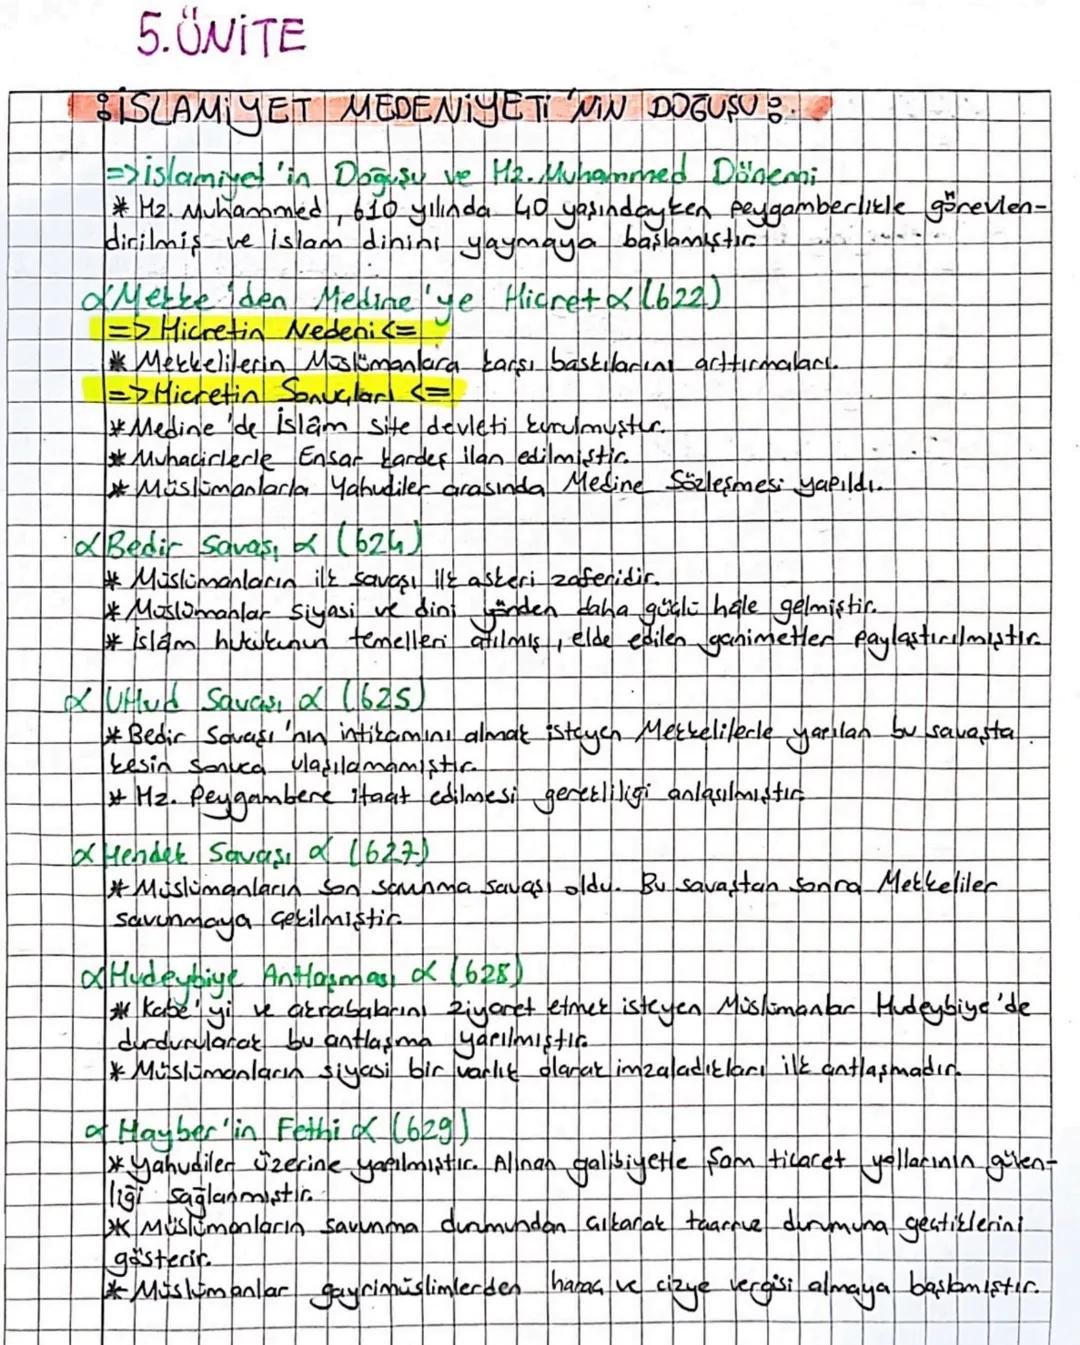 5.ÜNİTE
İSLAMİYET MEDENİYETİ'NİN DOĞUŞU
=> İslamiyet'in Doğuşu ve Hz. Muhammed Dönemi
* Hz. Muhammed, 610 yılında 40 yaşındayken peygamberlikle görevlen-
dirilmiş ve islam dinini yaymaya başlamıştır.
α Mekke'den Medine'ye Hicret α (622)
=> Hicretin Nedeni <=
* Mekkelilerin Müslümanlara karşı baskılarını arttırmaları.
=> Hicretin Sonuçları <=
* Medine'de İslâm site devleti kurulmuştur.
* Muhacirlerle Ensar kardeş ilan edilmiştir.
* Müslümanlarla Yahudiler arasında Medine Sözleşmesi yapıldı.
α Bedir Savaşı α (624)
* Müslümanların ilk savaşı ilk askeri zaferidir.
* Müslümanlar siyasi ve dini yönden daha güçlü hale gelmiştir.
* islâm hukukunun temelleri atılmış, elde edilen ganimetler paylaştırılmıştır.
α UHud Savaşı α (625)
* Bedir Savaşı'nın intikamını almak isteyen Mekkelilerle yapılan bu savaşta
kesin sonuca ulaşılamamıştır.
* Hz. Peygambere itaat edilmesi gerekliliği anlaşılmıştır.
α Hendek Savaşı α (627)
* Müslümanların son savunma savaşı oldu. Bu savaştan sonra Mekkeliler
savunmaya çekilmiştir.
α Hudeybiye Antlaşması α (628)
* Kabe'yi ve akrabalarını ziyaret etmek isteyen Müslümanlar Hudeybiye'de
durdurularak bu antlaşma yapılmıştır.
* Müslümanların siyasi bir varlık olarak imzaladıkları ilk antlaşmadır.
α Hayber'in Fethi α (629)
* Yahudiler üzerine yapılmıştır. Alınan galibiyetle Şam ticaret yollarının güven-
liği sağlanmıştır.
* Müslümanların savunma durumundan çıkarak taarruz durumuna geçtiklerini
gösterir.
* Müslümanlar gayrimüslimlerden haraç ve cizye vergisi almaya başlamıştır.